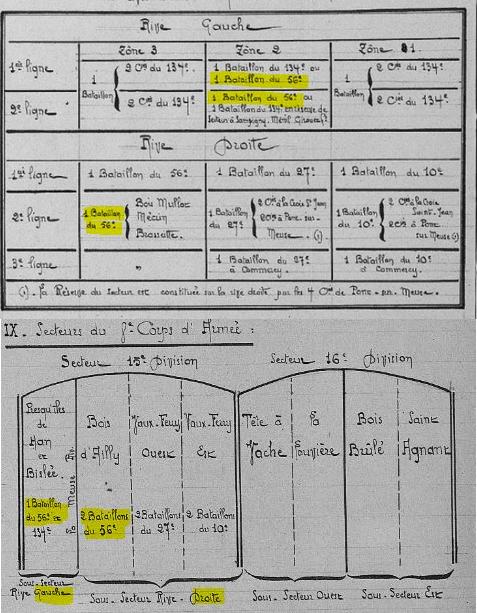 Rive Gauche
Zône 3 Zône 2 Zône 1.
1ère ligne
1 Bataillon
2 Cies du 134e
1 Bataillon du 134e ou
1 Bataillon du 56e
1 Bataillon
2 Cies du 134e
2e ligne
2 Cies du 134e
1 Bataillon du 56e ou
1 Bataillon du 134e en réserve de
secteur à Sampigny. Ménil
2 Cies du 134e
Rive Droite
1ère ligne
1 Bataillon du 56e
1 Bataillon du 27e
1 Bataillon du 10e
2e ligne
1 Bataillon
du 56e
Bois Mulloz
Mécrin
Brasseitte.
1 Bataillon
du 27e
2 Cies à la Croix St Jean
2 Cies à Pont-sur-
Meuse. (1)
1 Bataillon
du 10e
2 Cies à la Croix
Saint-Jean
2 Cies à Pont
sur Meuse (1)
3e ligne
"
1 Bataillon du 27e
à Commercy
1 Bataillon du 10e
à Commercy.
(1). La Réserve du Secteur est constituée sur la rive droite par les 4 Cies de Pont-sur-Meuse.
IX. Secteurs du 8e Corps d'Armée :
Secteur 15e Division
Secteur 16e Division
Presqu'iles
de
Han
et
Bislée.
La Meuse
Bois
d'Ailly
Vaux-Ferry
Ouest
Vaux-Ferry
Est
Tête à
Vache
La
Louvière
Bois
Brûlé
Saint
Agnant
1 Bataillon
du 56e et
134e
2 Bataillons
du 56e
2 Bataillons
du 27e
2 Bataillons
du 10e
Sous-Secteur
Rive Gauche
Sous-Secteur Rive-Droite
Sous-Secteur Ouest
Sous-Secteur Est